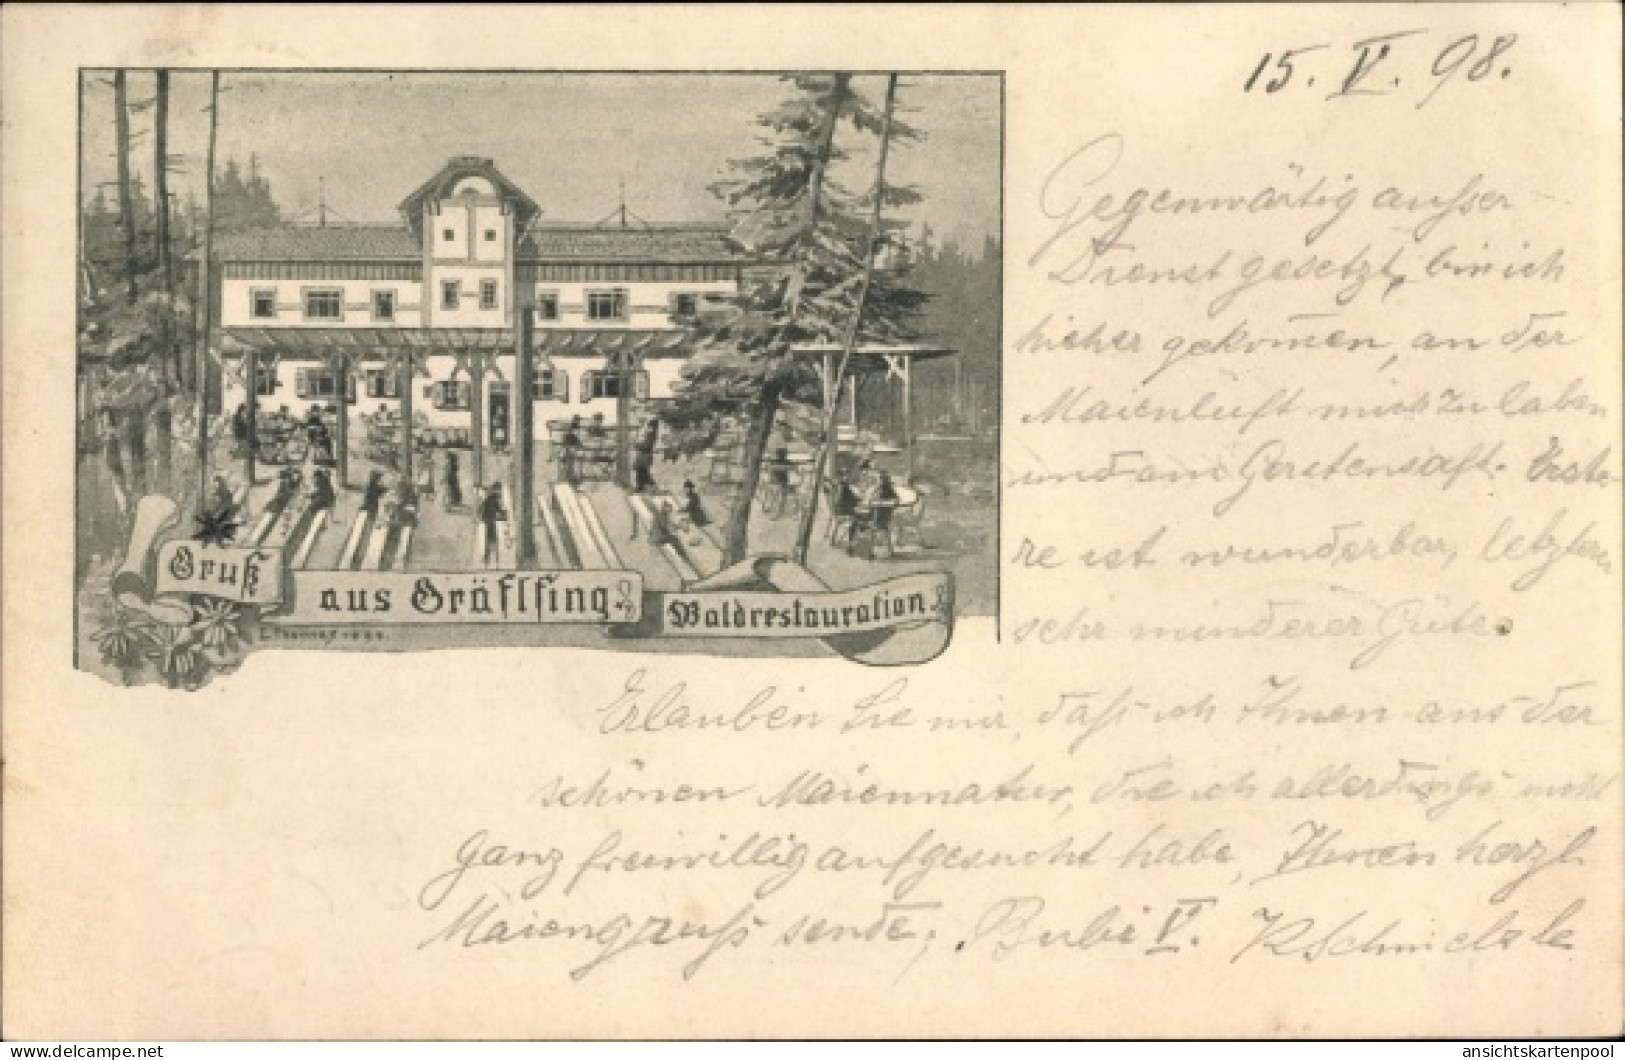 15. V. 98.
Gegenwärtig ausser
Dienst gesetzt, bin ich
hieher gekom̄en, an der
Maienluft mich zu laben
und am Gerstensaft. Erste-
re ist wunderbar, letztere
sehr minderer Güte.
Erlauben Sie mir, daß ich Ihnen aus der
schönen Maiennatur, die ich allerdings nicht
ganz freiwillig aufgesucht habe, Ihnen herzl.
Maiengruß sende; Bubi V.
Gruß
aus Gräflfing.
Waldrestauration.
delcampe.net
ansichtskartenpool